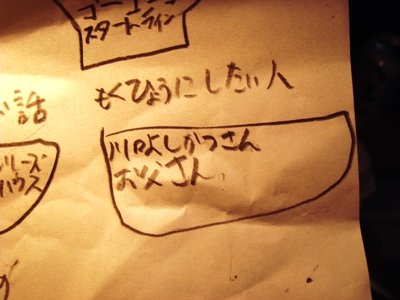 スタートライン
もくひょうにしたい人
い話
川口よしかつさん
お父さん。
リーズ
ハウス